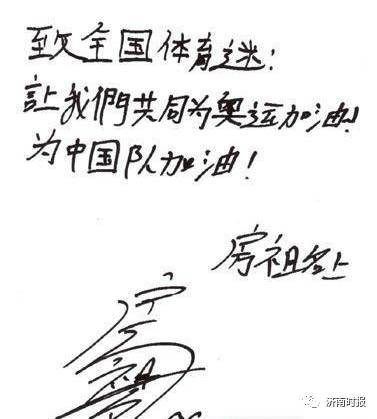 致全国体育迷：
讓我們共同为奥运加油！
为中国队加油！
房祖名上
济南时报